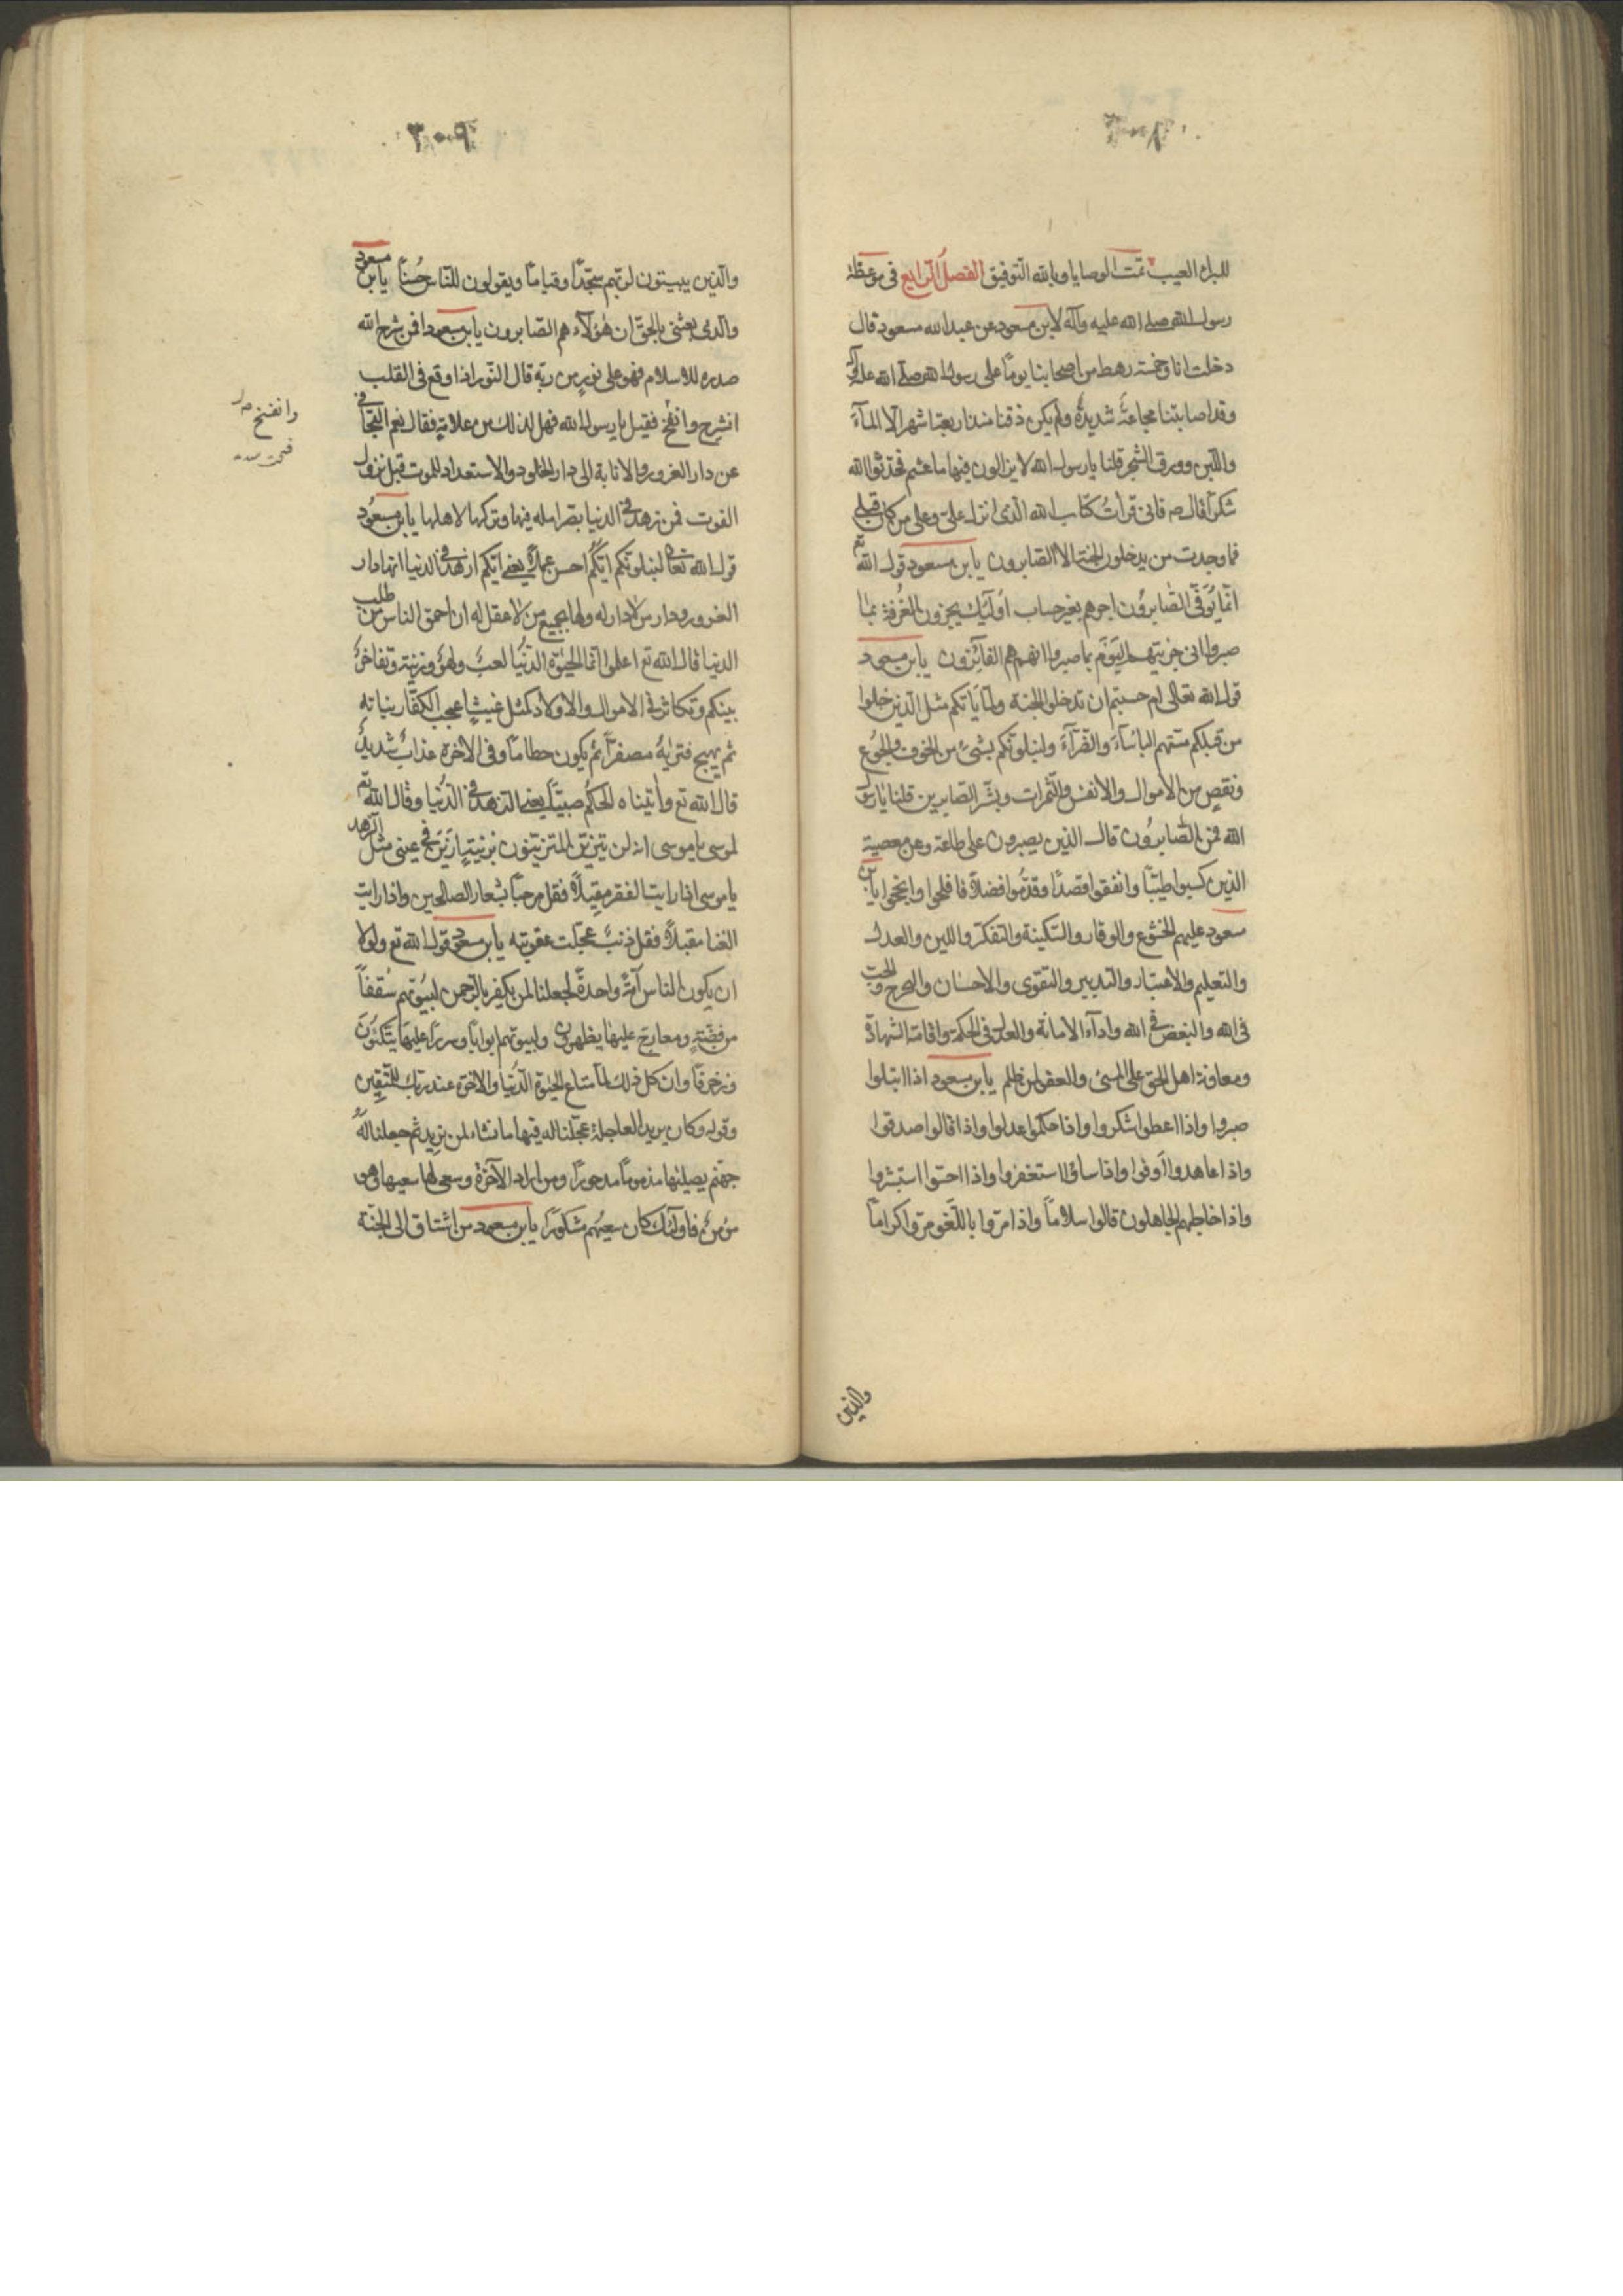 ٣٠٨
للبراء العيب تمت الوصايا وبالله التوفيق الفصل الرابع فى موعظة
رسول الله صلى الله عليه وآله لابن مسعود عن عبد الله مسعود قال
دخلت انا وخمسة رهط من اصحابنا يوماً على رسول الله صلى الله عليه وآله
وقد اصابتنا مجاعة شديدة ولم يكن ذقنا منذ اربعة اشهر الا المآء
واللبن وورق الشجر قلنا يا رسول الله لا يزالون فيها ما عشتم فحدثوا الله
شكراً قال ص فانى قرأت كتاب الله الذى انزل على وعلى من كان قبلى
فما وجدت من يدخلون الجنة الا الصابرون يابن مسعود قول الله تع
انما يوفى الصابرون اجرهم بغير حساب اولئك يجزون الغرفة بما
صبروا انى جزيتهم اليوم بما صبروا انهم هم الفائزون يابن مسعود
قول الله تعالى ام حسبتم ان تدخلوا الجنة ولما ياتكم مثل الذين خلوا
من قبلكم مستهم الباساء والضراء ولنبلونكم بشىء من الخوف والجوع
ونقص من الاموال والانفس والثمرات وبشر الصابرين قلنا يا رسول
الله فمن الصابرون قال الذين يصبرون على طاعة وعن معصية
الذين كسبوا طيباً وانفقوا قصداً وقدموا فضلاً فافلحوا وانجحوا يابن
مسعود عليهم الخشوع والوقار والسكينة والتفكر واللين والعدل
والتعليم والاعتبار والتدبير والتقوى والاحسان والتحرج والحب
فى الله والبغض فى الله واداء الامانة والعدل فى الحكمة واقامة الشهادة
ومعاونة اهل الحق على المسئ والعفو لمن ظلم يابن مسعود اذا ابتلوا
صبروا واذا اعطوا شكروا واذا حكموا عدلوا واذا قالوا صدقوا
واذا عاهدوا اوفوا واذا ساؤا استغفروا واذا احسنوا استبشروا
واذا خاطبهم الجاهلون قالوا سلاماً واذا مروا باللغو مروا كراماً
والذين
٣٠٩
والذين يبيتون لربهم سجداً وقياماً ويقولون للناس حسناً يابن مسعود
والذى بعثنى بالحق ان هؤلاء هم الصابرون يابن مسعود افمن شرح الله
صدره للاسلام فهو على نور من ربه قال النور اذا وقع فى القلب
انشرح وانفسح فقيل يا رسول الله فهل لذلك من علامة فقال نعم التجافى
عن دار الغرور والانابة الى دار الخلود والاستعداد للموت قبل نزول
الفوت فمن زهد فى الدنيا بقصر امله فيها وتركها لاهلها يابن مسعود
قول الله تعالى ليبلوكم ايكم احسن عملاً يعنى ايكم ازهد فى الدنيا انها دار
الغرور ودار من لا دار له ولها يجمع من لا عقل له ان احمق الناس من طلب
الدنيا قال الله تع اعلموا انما الحيوة الدنيا لعب ولهو وزينة وتفاخر
بينكم وتكاثر فى الاموال والاولاد كمثل غيث اعجب الكفار نباته
ثم يهيج فتريه مصفراً ثم يكون حطاماً وفى الآخرة عذاب شديد
قال الله تع وآتيناه الحكم صبياً يعنى الزهد فى الدنيا وقال الله تع
لموسى يا موسى انه لن يتزين المتزينون بزينة ازين فى عينى مثل الزهد
يا موسى اذا رايت الفقر مقبلاً فقل مرحباً بشعار الصالحين واذا رايت
الغنا مقبلاً فقل ذنب عجلت عقوبته يابن مسعود قول الله تع ولولا
ان يكون الناس امة واحدة لجعلنا لمن يكفر بالرحمن لبيوتهم سقفاً
من فضة ومعارج عليها يظهرون ولبيوتهم ابواباً وسرراً عليها يتكئون
وزخرفاً وان كل ذلك لما متاع الحيوة الدنيا والآخرة عند ربك للمتقين
وقوله وكان يريد العاجلة عجلنا له فيها ما نشاء لمن نريد ثم جعلنا له
جهنم يصليها مذموماً مدحوراً ومن اراد الآخرة وسعى لها سعيها وهو
مؤمن فاولئك كان سعيهم مشكوراً يابن مسعود من اشتاق الى الجنة
وانفسح